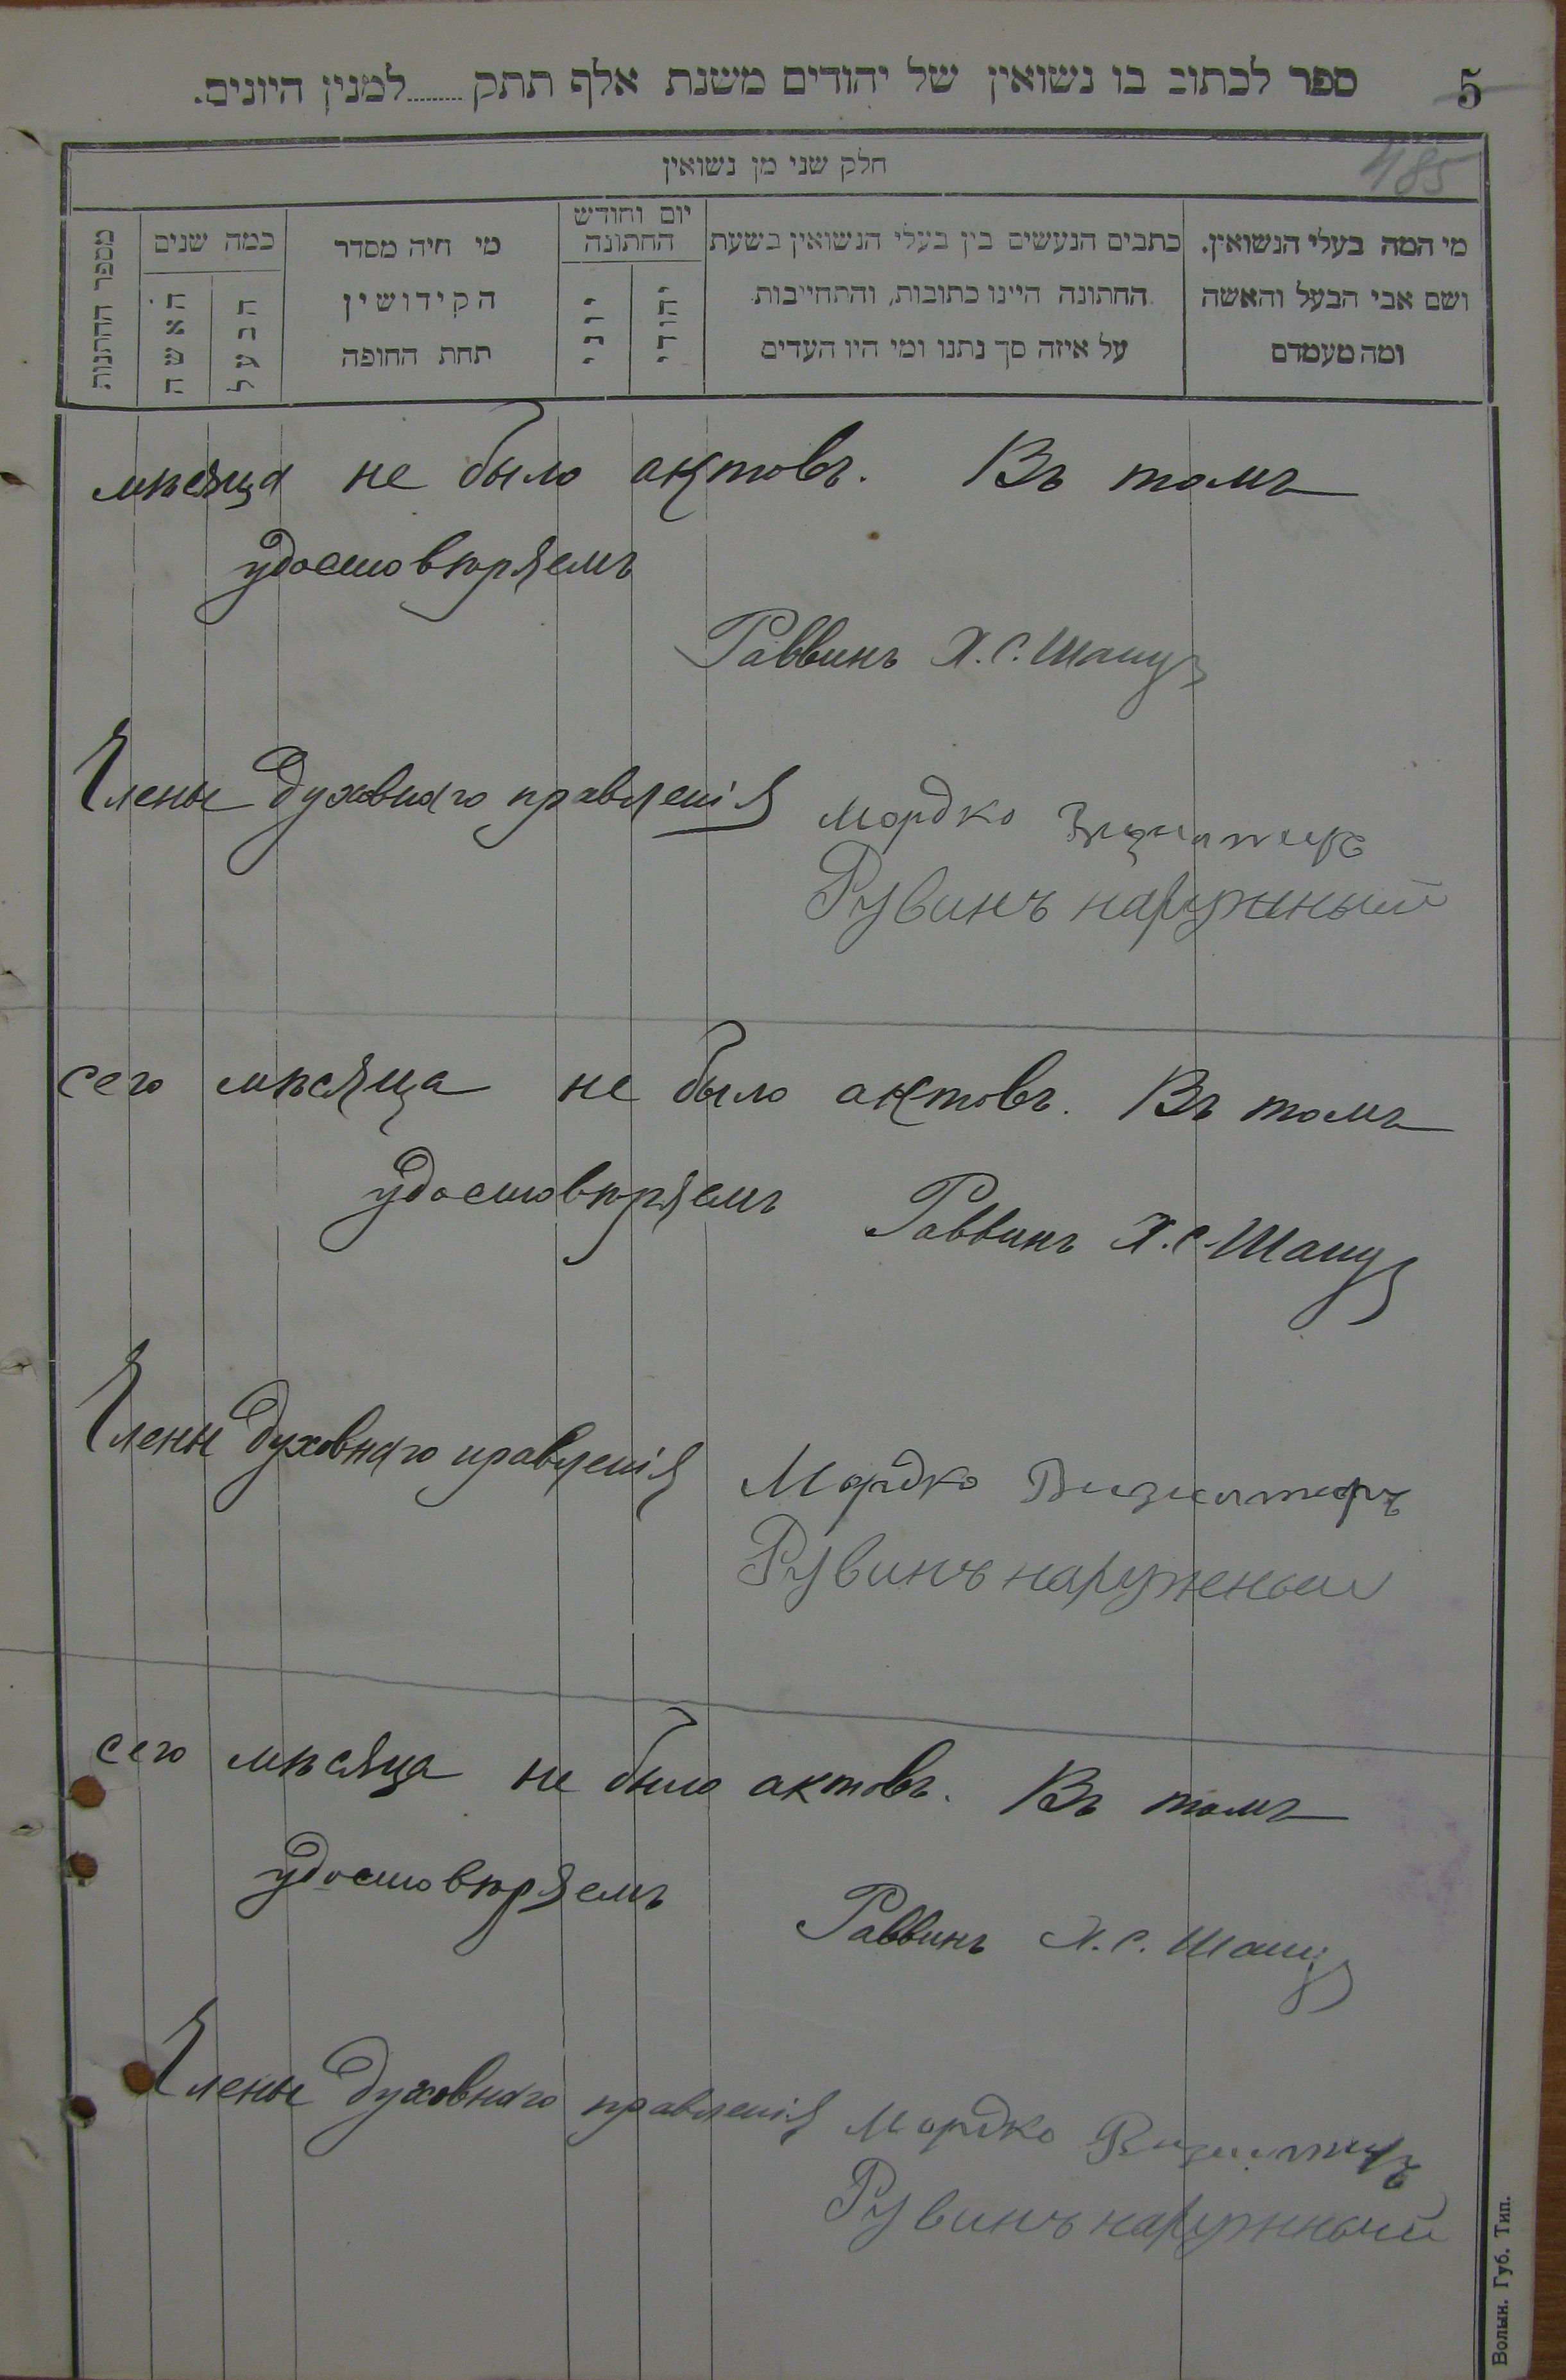 ספר לכתוב בו נשואין של יהודים משנת אלף תתק........למנין היונים.
5
185
חלק שני מן נשואין
מי המה בעלי הנשואין.
ושם אבי הבעל והאשה
ומה מעמדם
כתבים הנעשים בין בעלי הנשואין בשעת
החתונה היינו כתובות, והתחייבות
על איזה סך נתנו ומי היו העדים
יום וחודש
החתונה
יהודי
יוני
מי חיה מסדר
הקידושין
תחת החופה
כמה שנים
הבעל
האשה
מספר החתנות
мѣсяца не было актовъ. Въ томъ
удостовѣряемъ
Раввинъ Х. С. Шапу
Члены духовнаго правленія Мордко
Рувинъ наружный
сего мѣсяца не было актовъ. Въ томъ
удостовѣряемъ Раввинъ Х. С. Шапу
Члены духовнаго правленія Мордко Визилтеръ
Рувинъ наружный
сего мѣсяца не было актовъ. Въ томъ
удостовѣряемъ
Раввинъ Х. С. Шапу
Члены духовнаго правленія Мордко
Рувинъ наружный
Волын. Губ. Тип.